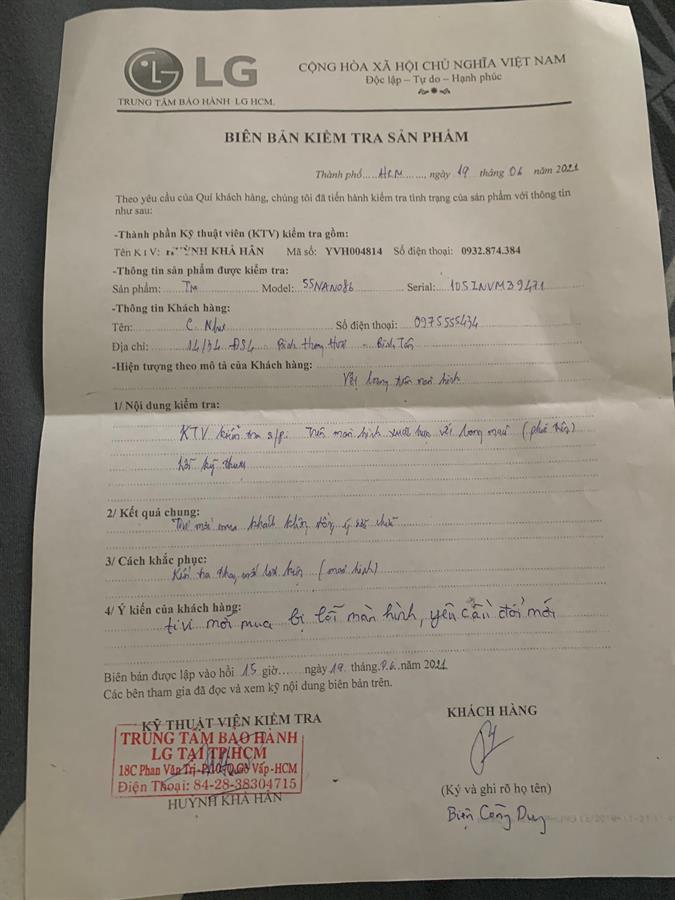 LG
TRUNG TÂM BẢO HÀNH LG HCM.
CỘNG HÒA XÃ HỘI CHỦ NGHĨA VIỆT NAM
Độc lập – Tự do – Hạnh phúc
BIÊN BẢN KIỂM TRA SẢN PHẨM
Thành phố....HCM......, ngày 19 tháng 06 năm 2021
Theo yêu cầu của Quí khách hàng, chúng tôi đã tiến hành kiểm tra tình trạng của sản phẩm với thông tin
như sau:
-Thành phần Kỹ thuật viên (KTV) kiểm tra gồm:
Tên KTV: HUỲNH KHẢ HÂN Mã số: YVH004814 Số điện thoại: 0932.874.384
-Thông tin sản phẩm được kiểm tra:
Sản phẩm: TM Model: 55NANO86 Serial: 105INVM39471
-Thông tin Khách hàng:
Tên: C. Như Số điện thoại: 0975555434
Địa chỉ: 14/34 ĐS4 Bình Hưng Hoà Bình Tân
-Hiện tượng theo mô tả của Khách hàng:
trên màn hình
1/ Nội dung kiểm tra:
KTV kiểm tra s/p. Trên màn hình xuất hiện (phía trên)
kỹ thuật
2/ Kết quả chung:
mới mua khách không đồng ý sửa chữa
3/ Cách khắc phục:
Kiểm tra thay mới linh kiện (màn hình)
4/ Ý kiến của khách hàng:
tivi mới mua bị lỗi màn hình, yêu cầu đổi mới
Biên bản được lập vào hồi 15 giờ...... ngày 19. tháng.06.năm 2021
Các bên tham gia đã đọc và xem kỹ nội dung biên bản trên.
KỸ THUẬT VIÊN KIỂM TRA
KHÁCH HÀNG
TRUNG TÂM BẢO HÀNH
LG TẠI TP.HCM
18C Phan Văn Trị-P.10-Q.Gò Vấp-HCM
Điện Thoại: 84-28-38304715
HUỲNH KHẢ HÂN
(Ký và ghi rõ họ tên)
Biện Công Duy